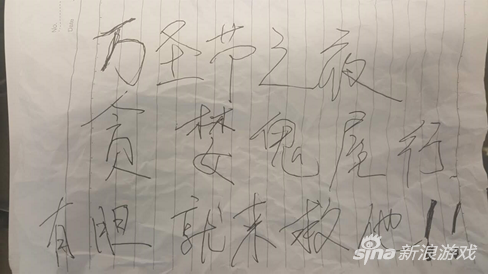 万圣节之夜
贪婪鬼屋行
有胆就来救他!!
sina新浪游戏